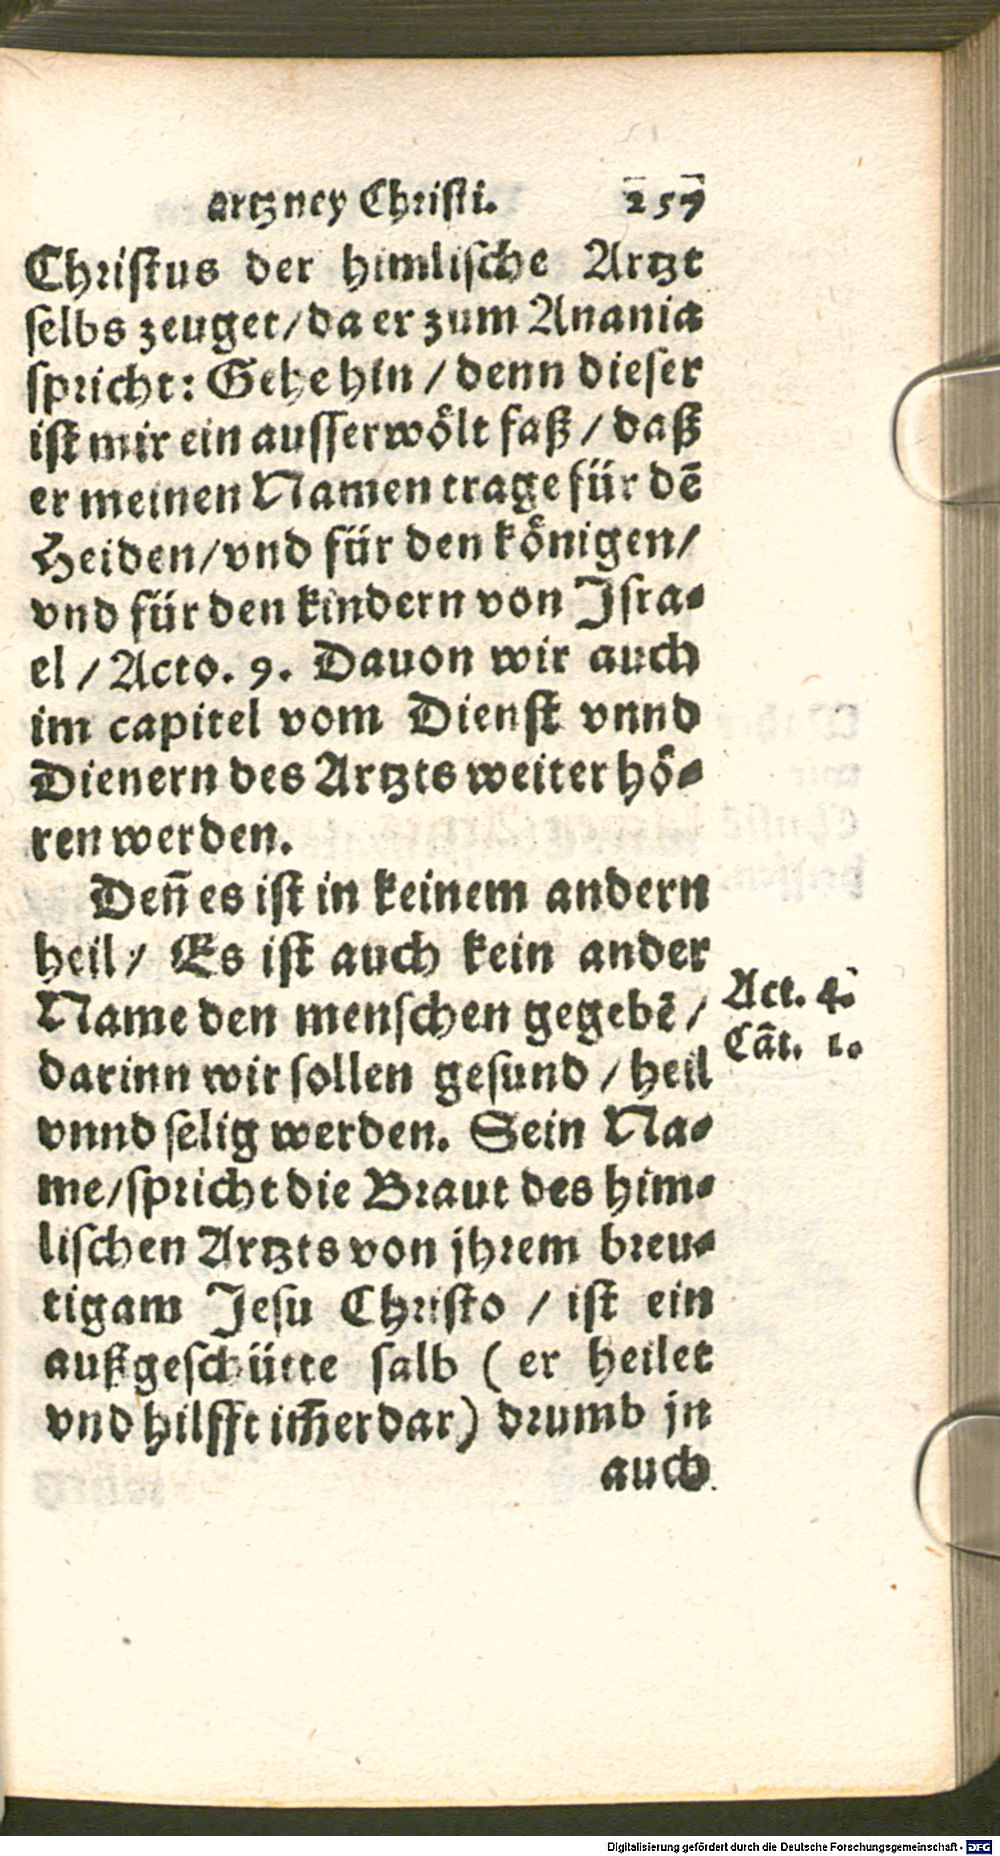 artzney Christi. 257
Christus der himlische Artzt
selbs zeuget/da er zum Anania
spricht: Gehe hin / denn dieser
ist mir ein ausserwölt faß / daß
er meinen Namen trage für dē
Heiden/vnd für den königen/
vnd für den kindern von Jsra-
el / Acto. 9. Dauon wir auch
im capitel vom Dienst vnnd
Dienern des Artzts weiter hö-
ren werden.
Deñ es ist in keinem andern
heil / Es ist auch kein ander
Name den menschen gegebē /
darinn wir sollen gesund / heil
vnnd selig werden. Sein Na-
me/spricht die Braut des him-
lischen Artzts von jhrem breu-
tigam Jesu Christo / ist ein
außgeschütte salb ( er heilet
vnd hilfft im̄erdar) drumb jn
auch
Act. 4.
Cāt. 1.
Digitalisierung gefördert durch die Deutsche Forschungsgemeinschaft - DFG